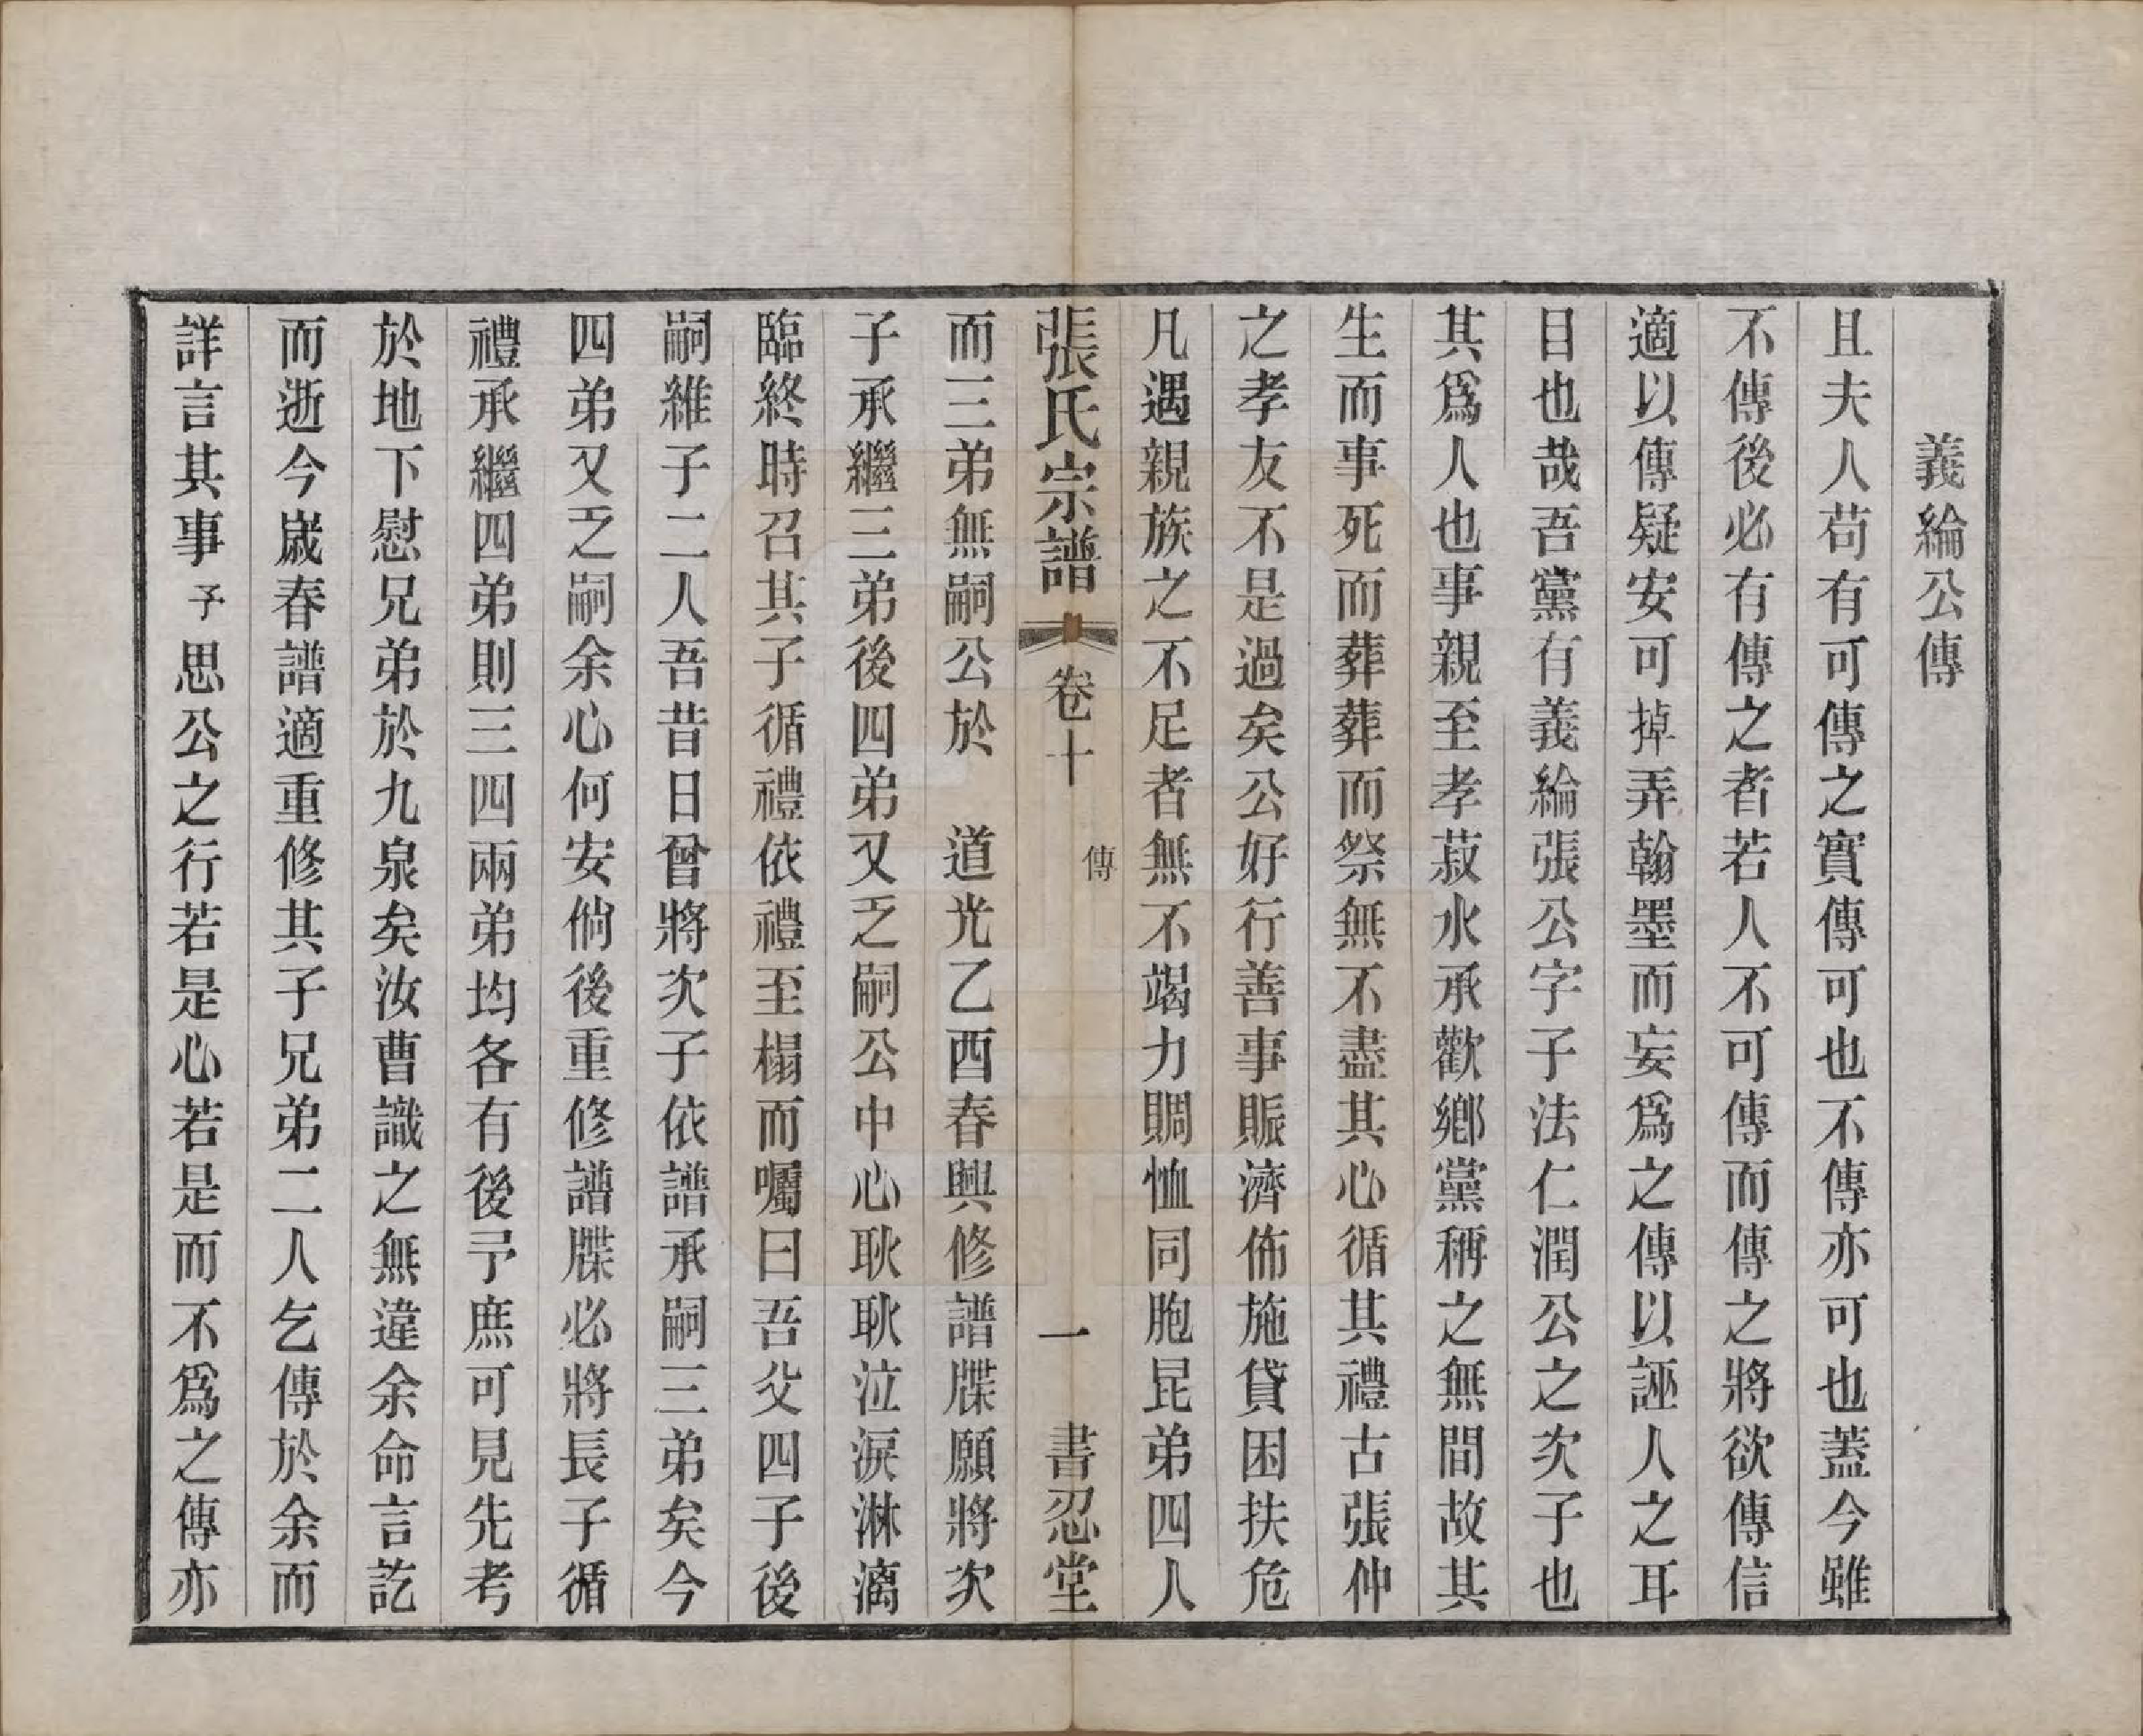 義綸公傳
且夫人苟有可傳之實傳可也不傳亦可也蓋今雖
不傳後必有傳之者若人不可傳而傳之將欲傳信
適以傳疑安可掉弄翰墨而妄爲之傳以誣人之耳
目也哉吾黨有義綸張公字子法仁潤公之次子也
其爲人也事親至孝菽水承歡鄉黨稱之無間故其
生而事死而葬葬而祭無不盡其心循其禮古張仲
之孝友不是過矣公好行善事賑濟佈施貸困扶危
凡遇親族之不足者無不竭力賙恤同胞昆弟四人
張氏宗譜 卷十 傳 一 書忍堂
而三弟無嗣公於 道光乙酉春興修譜牒願將次
子承繼三弟後四弟又乏嗣公中心耿耿泣淚淋漓
臨終時召其子循禮依禮至榻而囑曰吾父四子後
嗣維子二人吾昔日曾將次子依譜承嗣三弟矣今
四弟又乏嗣余心何安倘後重修譜牒必將長子循
禮承繼四弟則三四兩弟均各有後予庶可見先考
於地下慰兄弟於九泉矣汝曹識之無違余命言訖
而逝今歲春譜適重修其子兄弟二人乞傳於余而
詳言其事予思公之行若是心若是而不爲之傳亦